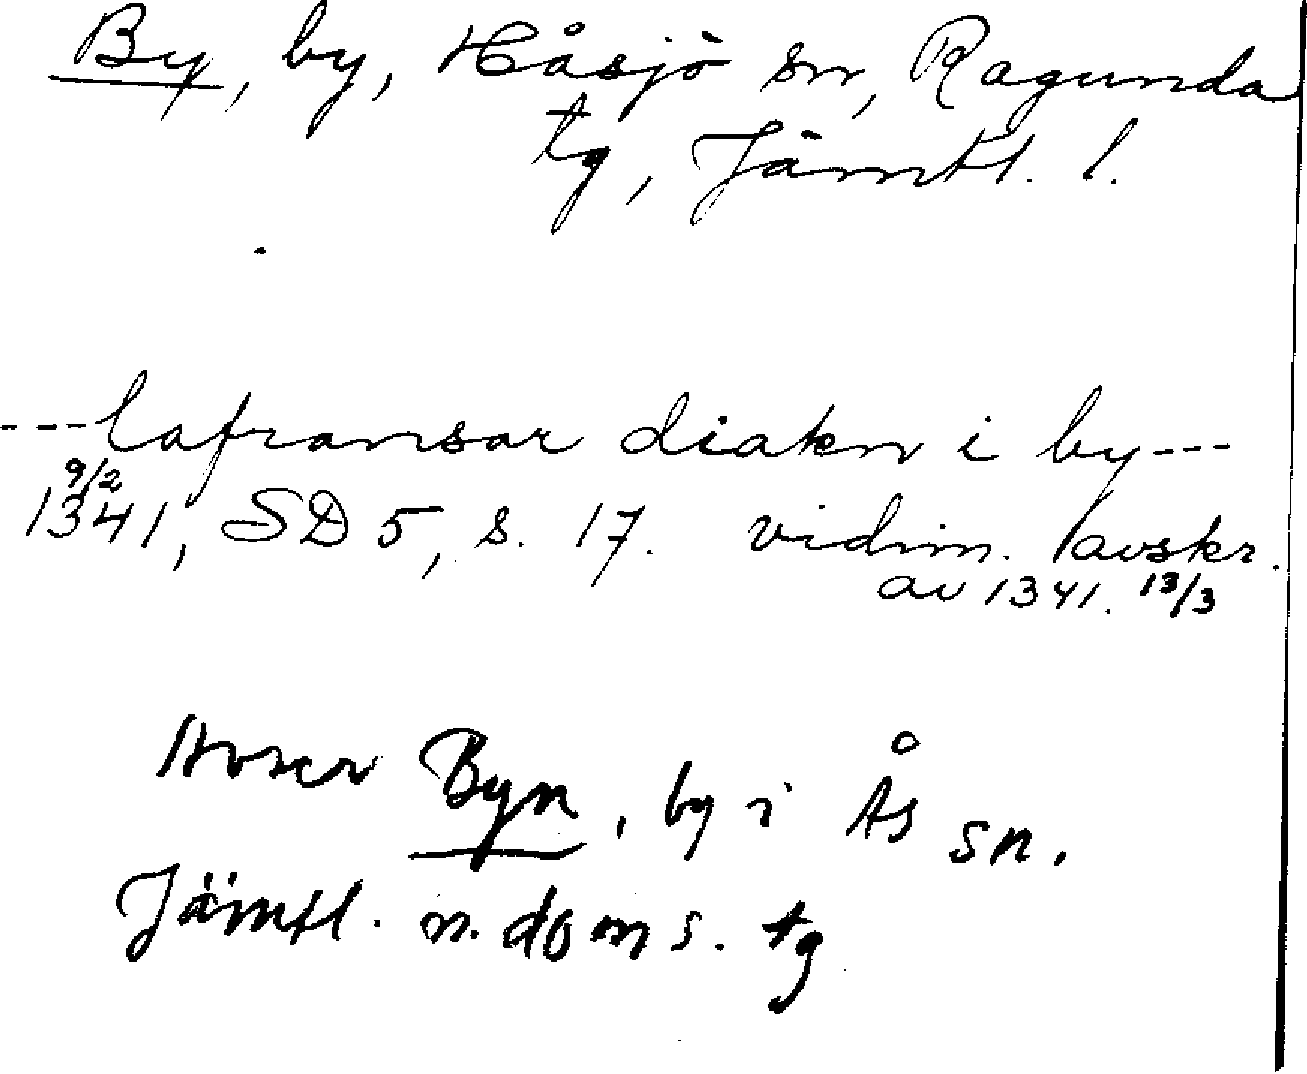 By, by, Håsjö sn, Ragunda
tg, Jämtl. l.
---lafransar diakn i by---
9/2
1341, SD 5, s. 17. vidim. avskr.
av 1341. 13/3
Avser Byn, by i Ås sn.
Jämtl. n. doms. tg